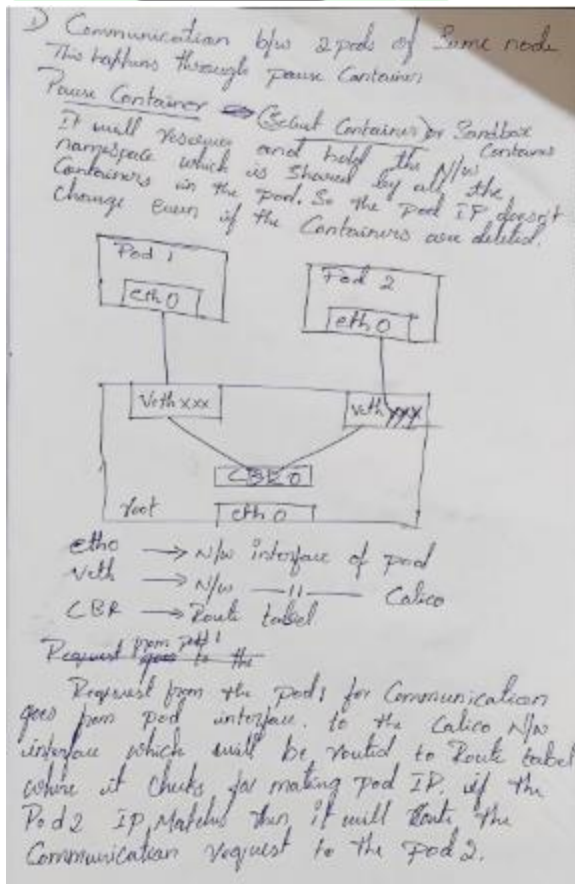 1) Communication b/w 2 pods of Same node
This happens through pause Container
Pause Container ⇒ (Secret Container) or Sandbox Container
It will reserve and hold the N/w
namespace which is shared by all the
Containers in the pod. So the pod IP doesn't
change even if the Containers are deleted.
Pod 1
Pod 2
eth 0
eth 0
Veth xxx
veth yyy
CBR 0
root
eth 0
etho → N/w interface of pod
Veth → N/w —11— Calico
CBR → Route tabel
Request from pod 1 goes to the
Request from the pod1 for Communication
goes from pod interface. to the Calico N/w
interface which will be routed to Route tabel
where it checks for mating pod IP. if the
Pod 2 IP Matches then it will Route the
Communication request to the pod 2.